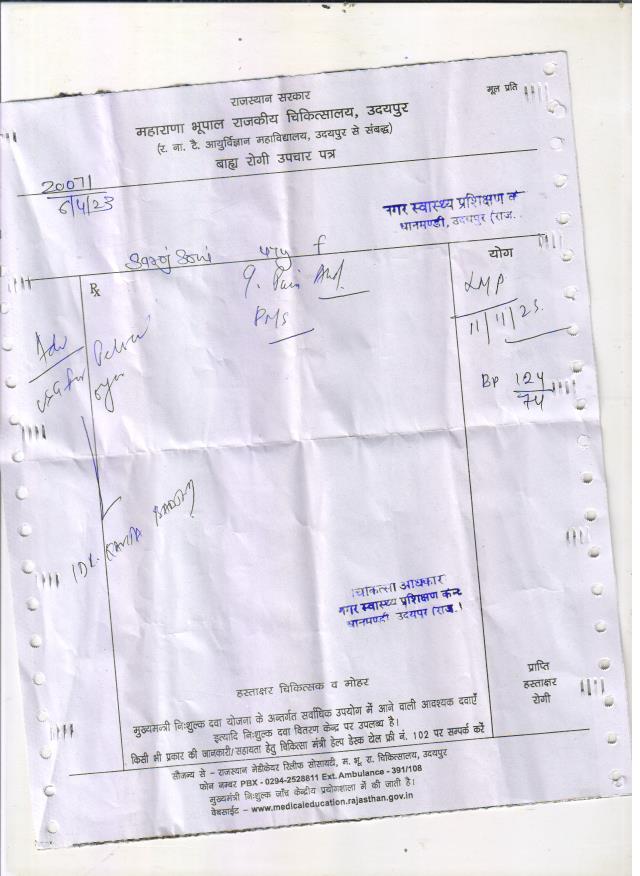 राजस्थान सरकार
मूल प्रति
महाराणा भूपाल राजकीय चिकित्सालय, उदयपुर
(र. ना. टै. आयुर्विज्ञान महाविद्यालय, उदयपुर से संबद्ध)
बाह्य रोगी उपचार पत्र
20071
6/4/23
नगर स्वास्थ्य प्रशिक्षण के
धानमण्डी, उदयपुर (राज.
f
योग
Rx
Pain Abd.
LMP
PMS
11/11/23.
Adv
BP 124
74
चिकित्सा अधिकार
नगर स्वास्थ्य प्रशिक्षण केन्द
धानमण्डी उदयपुर (राज.)
प्राप्ति
हस्ताक्षर
रोगी
हस्ताक्षर चिकित्सक व मोहर
मुख्यमन्त्री निःशुल्क दवा योजना के अन्तर्गत सर्वाधिक उपयोग में आने वाली आवश्यक दवाएँ
इत्यादि निःशुल्क दवा वितरण केन्द्र पर उपलब्ध है।
किसी भी प्रकार की जानकारी/सहायता हेतु चिकित्सा मंत्री हेल्प डेस्क टोल फ्री नं. 102 पर सम्पर्क करें
सौजन्य से – राजस्थान मेडीकेयर रिलीफ सोसायटी, म. भू. रा. चिकित्सालय, उदयपुर
फोन नम्बर PBX - 0294-2528811 Ext. Ambulance - 391/108
मुख्यमंत्री निःशुल्क जाँच केन्द्रीय प्रयोगशाला में की जाती है।
वेबसाईट – www.medicaleducation.rajasthan.gov.in